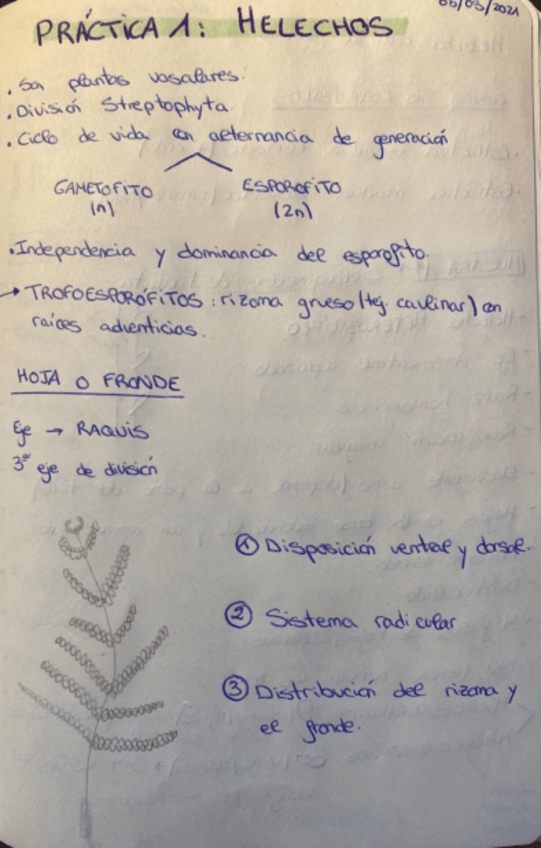 05/03/2021
PRÁCTICA 1: HELECHOS
. Son plantas vasculares.
. División Streptophyta.
. Ciclo de vida con alternancia de generación
GAMETOFITO ESPOROFITO
(n) (2n)
. Independencia y dominancia del esporofito.
→ TROFOESPOROFITOS: rizoma grueso (tej. caulinar) con
raíces adventicias.
HOJA O FRONDE
Eje → RAQUIS
3er eje de división
① Disposición ventral y dorsal.
② Sistema radicular
③ Distribución del rizoma y
el fronde.